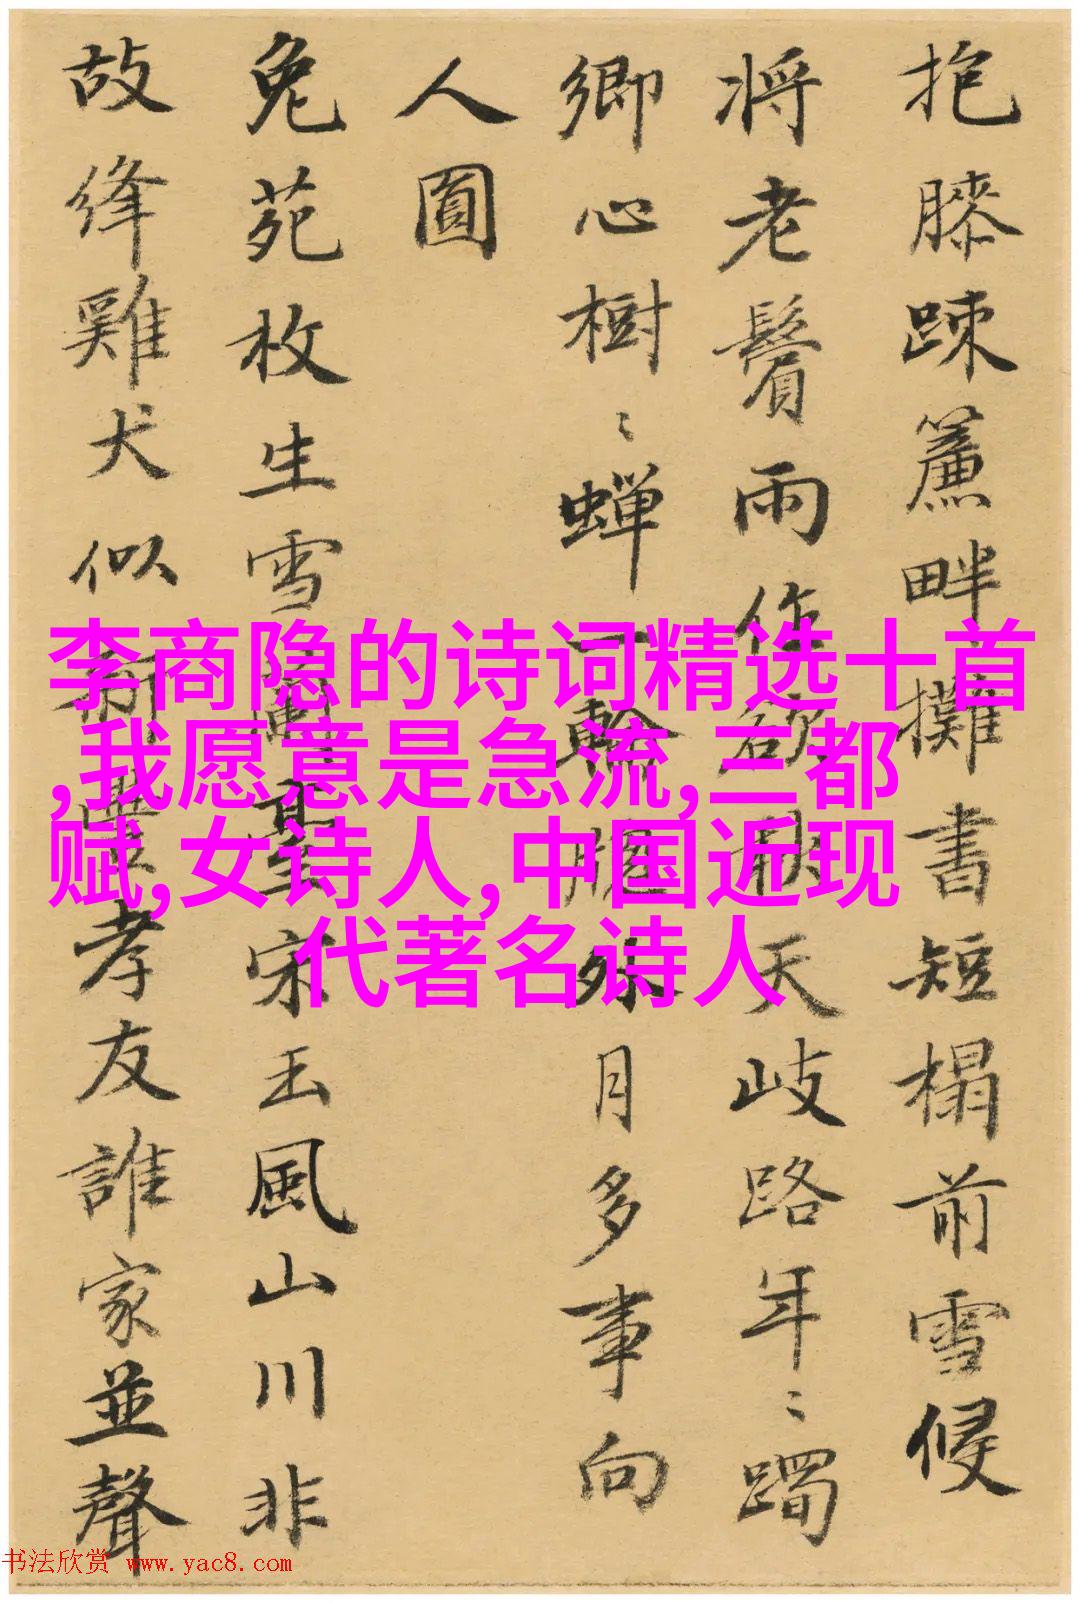 抱膝踈簾畔攤書短榻前雪侵
将老鬢雨作欲秋天岐路年〻躅
鄉心樹〻蟬一輪牕外月多事向
人圓
兔苑枚生雪蘭臺宋玉風山川非
故絳雞犬似新豐孝友誰家並聲
李商隐的诗词精选十首
,我愿意是急流,三都
赋,女诗人,中国近现
代著名诗人
书法欣赏 www.yac8.com